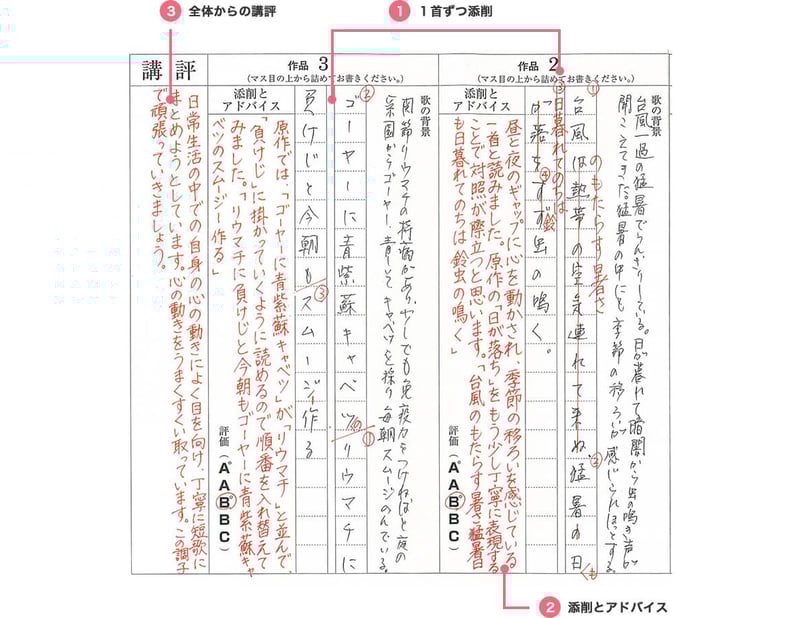 3 全体からの講評
1 1首ずつ添削
作品 2
(マス目の上から詰めてお書きください。)
歌の背景
台風一過の猛暑でうんざりしている。日が暮れて暗闇から虫の鳴き声が
聞こえてきた。猛暑の中にも季節の移ろいが感じられほっとする。
①
のもたらす暑さ
②
台風は熱帯の空気連れて来ぬ猛暑の日
も
③日暮れてのちは
④鈴
落ちすず虫の鳴く。
添削とアドバイス
昼と夜のギャップに心を動かされ、季節の移ろいを感じている
一首と読みました。原作の「日が落ち」をもう少し丁寧に表現する
ことで対照が際立つと思います。「台風のもたらす暑さ猛暑日
も日暮れてのちは鈴虫の鳴く」
評価(A°AB°BC)
作品 3
(マス目の上から詰めてお書きください。)
歌の背景
関節リウマチの持病があり、少しでも免疫力をつけねばと庭の
菜園からゴーヤー、青じそ、キャベツを採り毎朝スムージーのんでいる。
②
ゴーヤーに青紫蘇キャベツリウマチに
の
①
負けじと今朝もスムージー作る
③
添削とアドバイス
原作では、「ゴーヤーに青紫蘇キャベツ」が「リウマチ」と並んで、
「負けじ」に掛かっていくように読めるので順番を入れ替えて
みました。「リウマチに負けじと今朝もゴーヤーに青紫蘇キャ
ベツのスムージー作る」
評価(A°AB°BC)
講評
日常生活の中での自身の心の動きによく目を向け、丁寧に短歌に
まとめようとしています。心の動きをうまくすくい取っています。この調子
で頑張っていきましょう。
2 添削とアドバイス